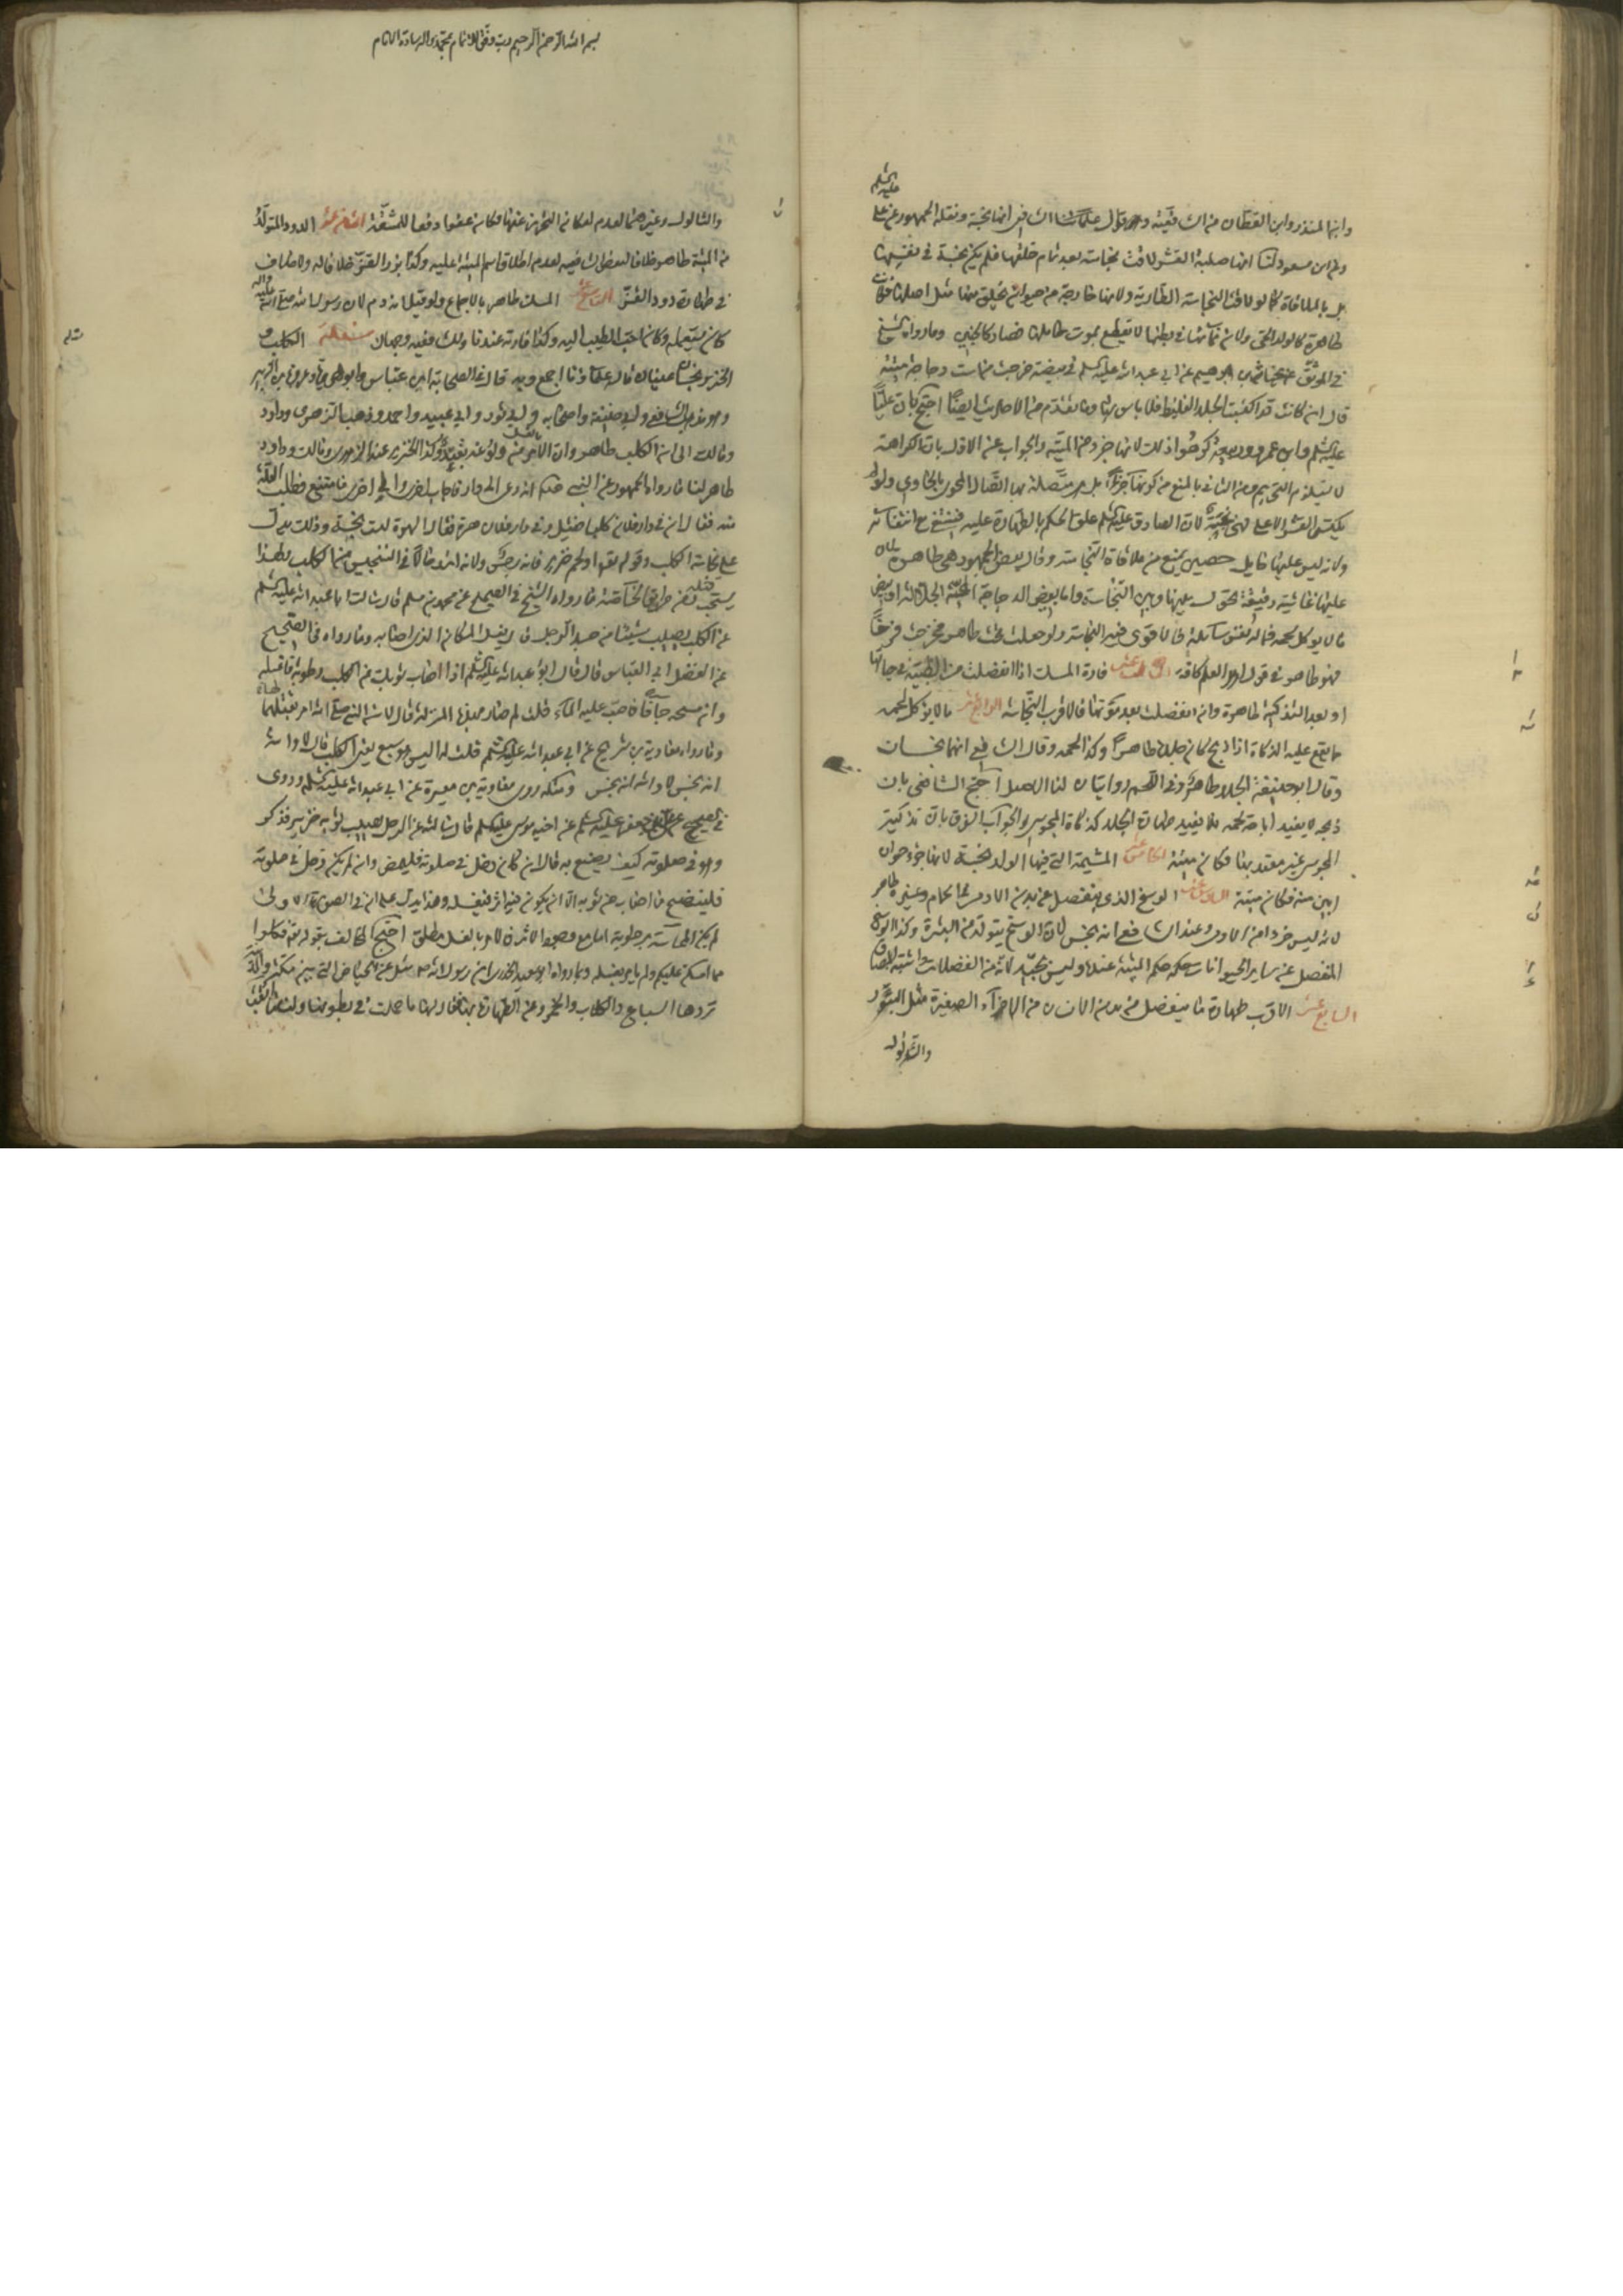 عليه السلم
وابنا المنذر وابن القطان من الشافعية وهو قول علمائنا الشافعي انها نجسة ونقله الجمهور عن علي
وابن مسعود لنا انها صلبة القشر لاقت نجاسة بعد تمام خلقها فلم يكن نجسة في نفسها
بل بالملاقاة كما لو لاقت النجاسة الطارية ولانها خارجة من حيوان يخلق منها مثل اصلها فكانت
طاهرة كالولد الحي ولان نمائها في بطنها لا تقطع بموت حاملها فصار كالجنين وما رواه الشيخ
في الموثق عن غياث بن ابرهيم عن ابي عبد الله عليه السلم في بيضة خرجت من است دجاجة ميتة
قال ان كانت قد اكتست الجلد الغليظ فلا باس بها وما تقدم من الاحاديث ايضا احتج بان عليا
عليه السلم وابن عمر وربيعة كرهوا ذلك لانها جزء من الميتة والجواب عن الاول بان الكراهة
لا يستلزم التحريم وعن الثاني بالمنع من كونها جزءا بل هي متصلة بها اتصال المحوى بالحاوي ولو لم
يكتس القشر الاعلى فهي نجسة لان الصادق عليه السلم علق الحكم بالطهارة عليه فينتفي مع انتفائه
ولانه ليس عليها حايل حصين يمنع من ملاقاة النجاسة وقال بعض الجمهور هي طاهرة لان
عليها غاشية رقيقة تحول بينها وبين النجاسة واما بيض الدجاجة الجلالة او بيض
ما لا يوكل لحمه فماله نفس سائلة فالاقوى فيه النجاسة ولو جعلت تحت طاهر فخرجت فرخا
فهو طاهر في قول اهل العلم كافة الثالث عشر فارة المسك اذا انفصلت من الظبية في حياتها
او بعد التذكية طاهرة وان انفصلت بعد موتها فالاقرب النجاسة الرابع عشر ما لا يؤكل لحمه
مما يقع عليه الذكاة اذا ذبح كان جلده طاهرا وكذا لحمه وقال الشافعي انهما نجسان
وقال ابو حنيفة الجلد طاهر وفي اللحم روايتان لنا الاصل احتج الشافعي بان
ذبحه لا يفيد اباحة لحمه فلا يفيد طهارة الجلد كذكاة المجوسي والجواب الفرق بان تذكية
المجوس غير معتد بها فكان ميتة الخامس عشر المشيمة التي فيها الولد نجسة لانها جزء حيوان
ابين منه فكان ميتة السادس عشر الوسخ الذي ينفصل عن بدن الادمي في الحمام وغيره طاهر
لانه ليس جزءا من الادمي وعند الشافعي انه نجس لان الوسخ يتولد من البشرة وكذا الوسخ
المنفصل عن ساير الحيوانات حكمه حكم الميتة عنده وليس بجيد لانه من الفضلات واشبه البصاق
السابع عشر الاقرب طهارة ما ينفصل من بدن الانسان من الاجزاء الصغيرة مثل البثور
والثالول
بسم الله الرحمن الرحيم رب وفقني للاتمام بمحمد واله السادة الانام
والثالول وغيرهما لعدم امكان التحرز عنها فكان عفوا دفعا للمشقة الثامن عشر الدود المتولد
من الميتة طاهر خلافا لبعض الشافعية لعدم اطلاق اسم الميتة عليه وكذا بزر القز خلافا له ولا خلاف
في طهارة دود القز التاسع عشر المسك طاهر بالاجماع ولو قيل انه دم لان رسول الله صلى الله عليه واله
كان يتعمله وكان احب الطيب اليه وكذا فارته عندنا وللشافعي فيه وجهان مسئلة الكلب و
الخنزير نجسان عينا قال علماؤنا اجمع وبه قال في الصحابة ابن عباس وابو هريرة وعروة بن الزبير
وهو مذهب الشافعي وابي حنيفة واصحابه وابي ثور وابي عبيد واحمد وذهب الزهري وداود
ومالك الى ان الكلب طاهر وان الامر بالغسل منه ولوغه تعبد وكذا الخنزير عند الزهري ومالك وداود
طاهر لنا ما رواه الجمهور عن النبي صلى انه دعى الى دار فاجاب اخرى والى اخرى فامتنع فطلب العلة
منه فقال ان في دار فلان كلبا فقيل وفي دار فلان هرة فقال الهرة ليست بنجسة وذلك يدل
على نجاسة الكلب وقوله تعالى او لحم خنزير فانه رجس ولانه اشد حالا في التنجيس من الكلب ولهذا
يستحب قتله ومن طريق الخاصة ما رواه الشيخ في الصحيح عن محمد بن مسلم قال سالت ابا عبد الله عليه السلم
عن الكلب يصيب شيئا من جسد الرجل قال يغسل المكان الذي اصابه وما رواه في الصحيح
عن الفضل ابي العباس قال قال ابو عبد الله عليه السلم اذا اصاب ثوبك من الكلب رطوبة فاغسله
وان مسحه جافا فاصبب عليه الماء قلت لم صار بهذه المنزلة قال لان النبي صلى الله امر بقتلها
وما رواه معاوية بن شريح عن ابي عبد الله عليه السلم قلت له اليس هو سبع يعني الكلب قال لا والله
انه نجس لا والله انه نجس ومثله روى معاوية بن ميسرة عن ابي عبد الله عليه السلم وروى
في الصحيح عن علي بن جعفر عليه السلم عن اخيه موسى عليه السلم قال سالته عن الرجل يصيب ثوبه خنزير فذكر
وهو في صلوته كيف يصنع به قال ان كان دخل في صلوته فليمض وان لم يكن دخل في صلوته
فلينضح ما اصاب من ثوبه الا ان يكون فيه اثر فيغسله وهذا يدل على ان في الصورة الاولى
لم يكن المماسة برطوبة اما مع وجود الاثر فالامر بالغسل مطلق احتج المخالف بقوله تعالى فكلوا
مما امسكن عليكم ولم يامر بغسله وبما رواه ابو سعيد الخدري ان رسول الله ص سئل عن الحياض التي بين مكة والمدينة
تردها السباع والكلاب والحمر وعن الطهارة بها فقال لها ما حملت في بطونها ولنا ما بقي